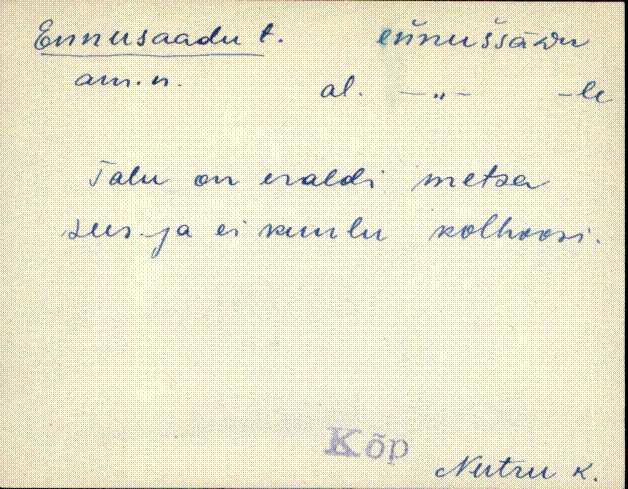 Ennusaadu t. eňnušsàdu
am. n. al. —„— -le
Talu on eraldi metsa
sees ja ei kuulu kolhoosi.
Kõp
Nutru k.